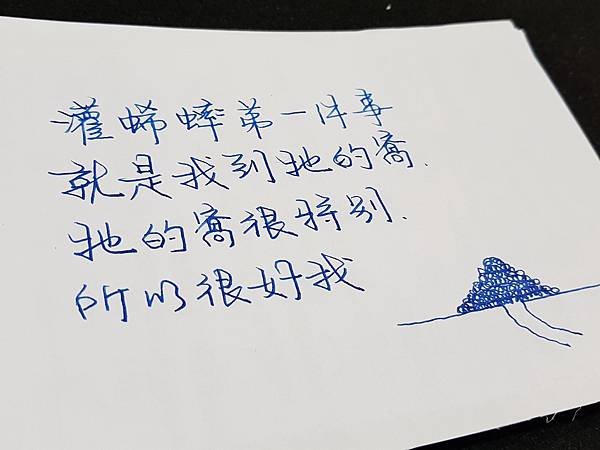 灌蟋蟀第一件事
就是找到牠的窩.
牠的窩很特別.
所以很好找